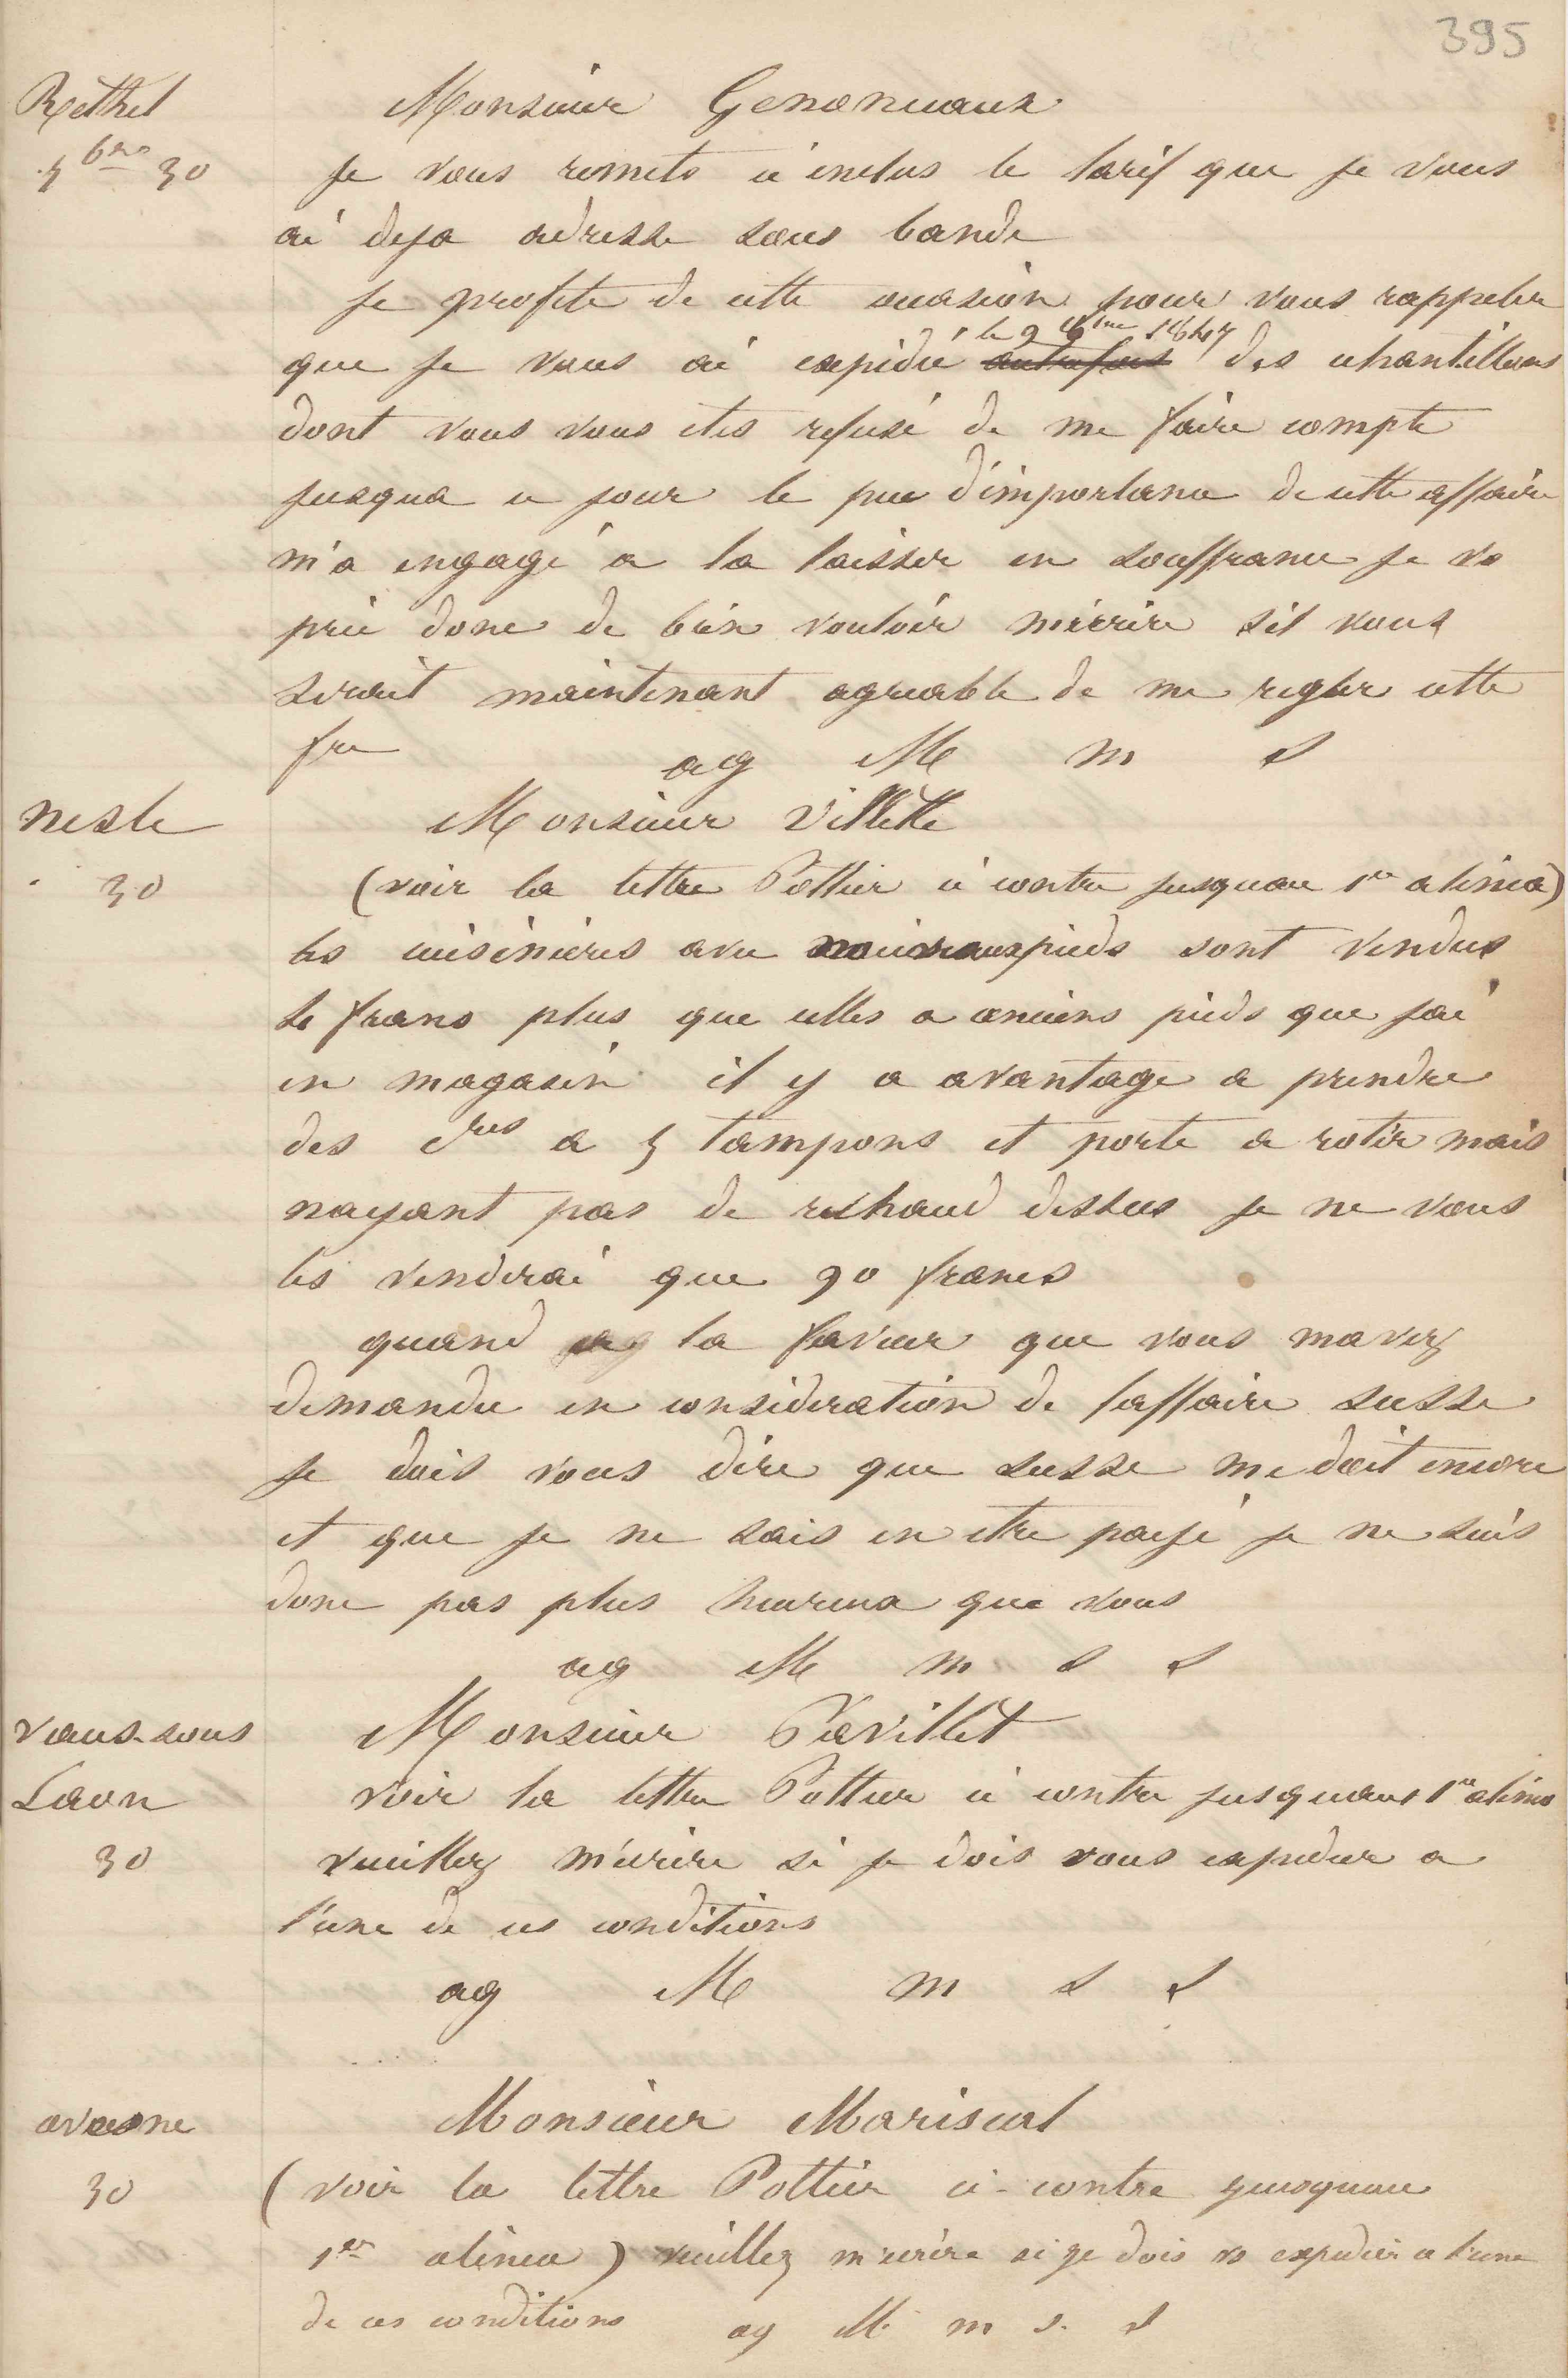 395
Rethel
7bre 30
Monsieur Genonceaux
je vous remets ci inclus le tarif que je vous
ai deja adresse sous bande
je profite de cette occasion pour vous rappeler
le 9 1847
que je vous ai expedié autrefois des echantillons
dont vous vous etes refusé de me faire compte
jusqua ce jour le peu d'importance de cette affaire
m'a engagé a la laisser en souffrance je vs
prie donc de bien vouloir m'ecrire sil vous
serait maintenant agreable de me regler cette
fre
ag M m s
nesle
30
Monsieur Villette
(voir la lettre Pottier ci contre jusquau 1er alinea)
les cuisinieres avec nouveaux pieds sont vendus
francs plus que celles a anciens pieds que jai
en magasin il y a avantage a prendre
des cres a 5 tampons et porte a rotir mais
nayant pas de rechaud dessus je ne vous
les venderai que 90 francs
quand ag la faveur que vous mavez
demandee en consideration de laffaire susse
je dois vous dire que susse me doit encore
et que je ne sais en etre payé je ne suis
donc pas plus heureux que vous
ag M m s s
vaux-sous
Laon
30
Monsieur Pavillet
voir la lettre Pottier ci contre jusquaux 1er alinea
veuillez m'ecrire si je dois vous expedier a
l'une de ces conditions
ag M m s s
avesne
30
Monsieur Mariscal
(voir la lettre Pottier ci-contre jusquau
1er alinea) veuillez m'ecrire si je dois vs expedier a l'une
de ces conditions ag M m s. s